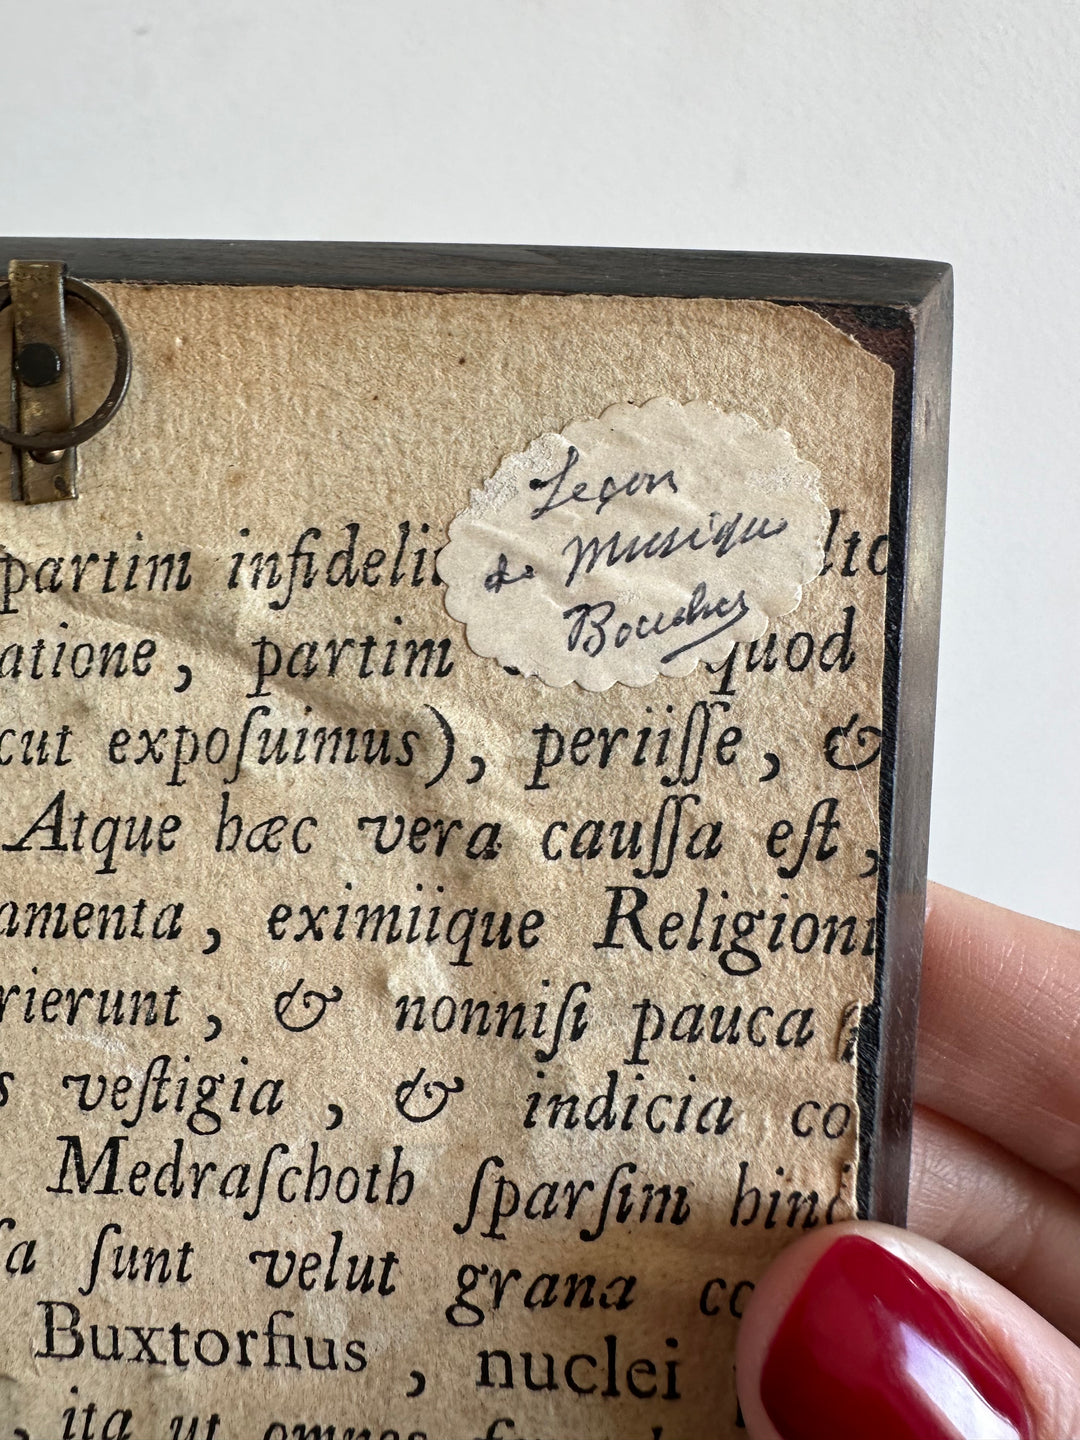 Leçon
de musique
Boucher
partim infideli
atione, partim quod
cut expoſuimus), periiſſe, &
Atque hæc vera cauſſa eſt,
amenta, eximiique Religioni
rierunt, & nonniſi pauca
s veſtigia, & indicia co
Medraſchoth ſparſim hinc
ſa ſunt velut grana co
Buxtorfius, nuclei
, ita ut omnes